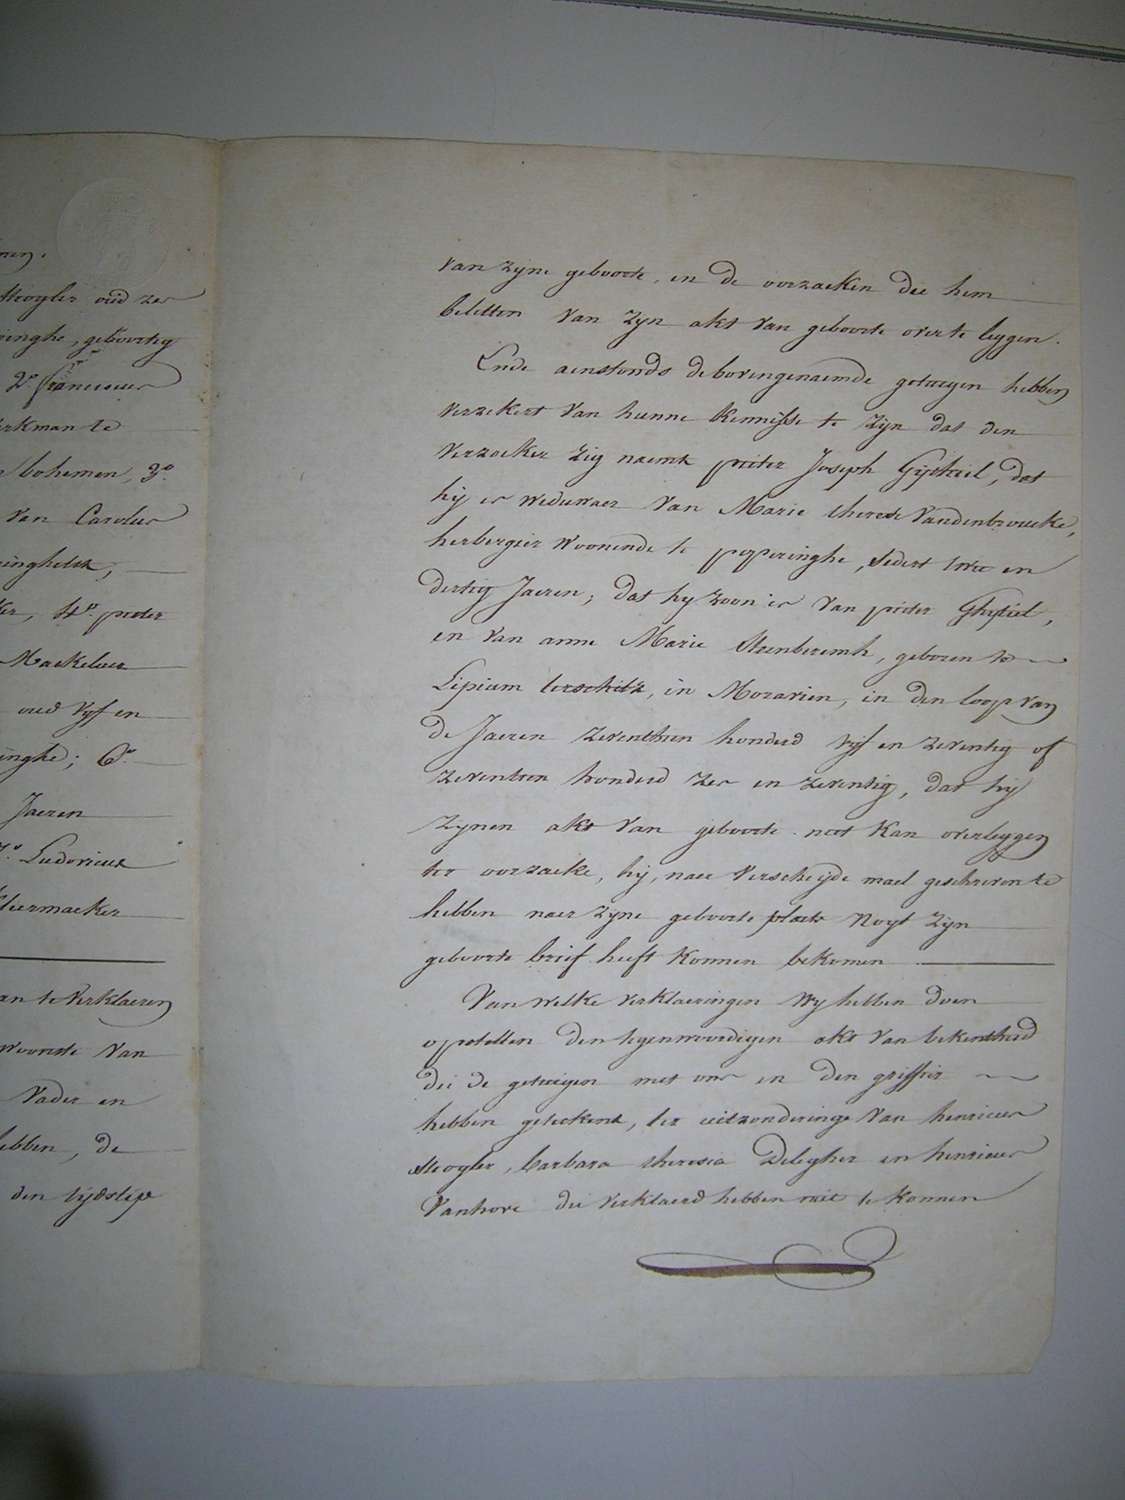 Stoogler oud zes
ringhe, geboortig
2º. franciscus
erkman te
bohemen, 3º.
van Carolus
inghelsk,
ker, 4º. pieter
Maekeluer
oud vyf en
inghe; 6º.
Jaeren
7º. Ludovicus
kleermaeker
an te verklaeren
woonste van
vader en
hebben, de
den tijdstip
van zijne geboorte, en de oorzaeken die hem
beletten van zijn akt van geboorte over te leggen.
Ende aenstonds de bovengenaemde getuigen hebben
verzekert van hunne kennisse te zijn dat den
verzoeker zig naemt pieter Joseph Gijsteil, dat
hij is weduwaer van Marie therese Vandenbroucke,
herbergier woonende te poperinghe, sedert twee en
dertig Jaeren; dat hy zoon is van pieter Ghysiel,
en van anne Marie Steenberemh, geboren te
Lipium terschitz, in Moravien, in den loop van
de Jaeren zeventhien honderd vijf en zeventig of
zeventien honderd zes en zeventig, dat hij
zijnen akt van geboorte niet kan overleggen
ter oorzaeke, hij, naer verscheijde mael geschreven te
hebben naer zijne geboorte plaets noyt zijn
geboorte brief heeft konnen bekomen
Van welke verklaeringen wy hebben doen
opstellen den tegenwoordigen akt van bekentheid
die de getuigen met ons en den griffier
hebben geteekent, ter uitzonderinge van henricus
Stoogler, barbara theresia Delegher en henricus
Vanhove die verklaerd hebben niet te konnen